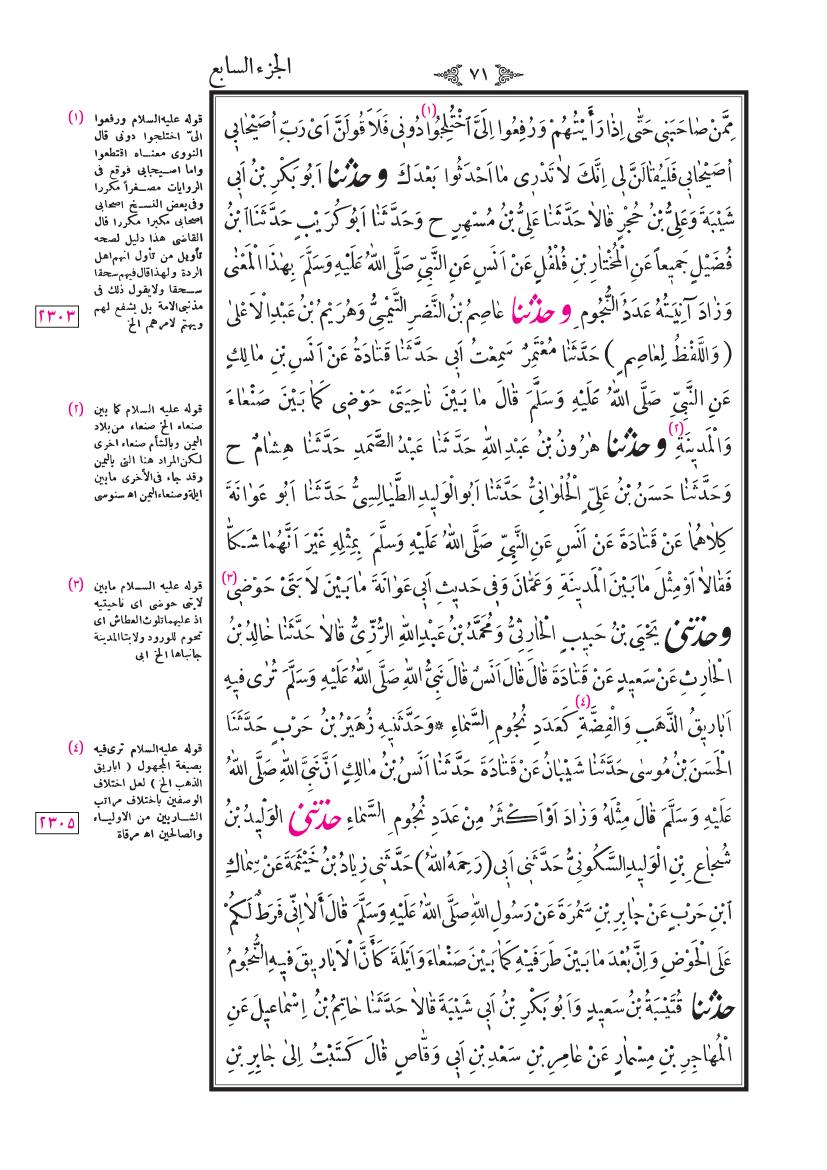 ٧١
الجزء السابع
مِمَّنْ صَاحَبَنِى حَتّٰى اِذَا رَأَيْتُهُمْ وَرُفِعُوا اِلَىَّ اَخْتُلِجُوا (١) دُونِى فَلَأَقُولَنَّ اَىْ رَبِّ اُصَيْحَابِى
اُصَيْحَابِى فَلَيُقَالَنَّ لِى اِنَّكَ لَا تَدْرِى مَا اَحْدَثُوا بَعْدَكَ وحدثنا اَبُو بَكْرِ بْنُ اَبِى
شَيْبَةَ وَعَلِىُّ بْنُ حُجْرٍ قَالَا حَدَّثَنَا عَلِىُّ بْنُ مُسْهِرٍ ح وَحَدَّثَنَا اَبُو كُرَيْبٍ حَدَّثَنَا ابْنُ
فُضَيْلٍ جَمِيعاً عَنِ الْمُخْتَارِ بْنِ فُلْفُلٍ عَنْ اَنَسٍ عَنِ النَّبِىِّ صَلَّى اللّٰهُ عَلَيْهِ وَسَلَّمَ بِهٰذَا الْمَعْنٰى
وَزَادَ آنِيَتُهُ عَدَدُ النُّجُومِ وحدثنا عَاصِمُ بْنُ النَّضْرِ التَّيْمِىُّ وَهُرَيْمُ بْنُ عَبْدِ الْاَعْلٰى
( وَاللَّفْظُ لِعَاصِمٍ ) حَدَّثَنَا مُعْتَمِرٌ سَمِعْتُ اَبِى حَدَّثَنَا قَتَادَةُ عَنْ اَنَسِ بْنِ مَالِكٍ
عَنِ النَّبِىِّ صَلَّى اللّٰهُ عَلَيْهِ وَسَلَّمَ قَالَ مَا بَيْنَ نَاحِيَتَىْ حَوْضِى كَمَا بَيْنَ صَنْعَاءَ
وَالْمَدِينَةِ (٢) وحدثنا هٰرُونُ بْنُ عَبْدِ اللّٰهِ حَدَّثَنَا عَبْدُ الصَّمَدِ حَدَّثَنَا هِشَامٌ ح
وَحَدَّثَنَا حَسَنُ بْنُ عَلِىٍّ الْحُلْوَانِىُّ حَدَّثَنَا اَبُو الْوَلِيدِ الطَّيَالِسِىُّ حَدَّثَنَا اَبُو عَوَانَةَ
كِلَاهُمَا عَنْ قَتَادَةَ عَنْ اَنَسٍ عَنِ النَّبِىِّ صَلَّى اللّٰهُ عَلَيْهِ وَسَلَّمَ بِمِثْلِهِ غَيْرَ اَنَّهُمَا شَكَّا
فَقَالَا اَوْ مِثْلَ مَا بَيْنَ الْمَدِينَةِ وَعَمَّانَ وَفِى حَدِيثِ اَبِى عَوَانَةَ مَا بَيْنَ لَابَتَىْ حَوْضِى (٣)
وحدثنى يَحْيَى بْنُ حَبِيبٍ الْحَارِثِىُّ وَمُحَمَّدُ بْنُ عَبْدِ اللّٰهِ الرُّزِّىُّ قَالَا حَدَّثَنَا خَالِدُ بْنُ
الْحَارِثِ عَنْ سَعِيدٍ عَنْ قَتَادَةَ قَالَ قَالَ اَنَسٌ قَالَ نَبِىُّ اللّٰهِ صَلَّى اللّٰهُ عَلَيْهِ وَسَلَّمَ تُرٰى فِيهِ
اَبَارِيقُ الذَّهَبِ وَالْفِضَّةِ (٤) كَعَدَدِ نُجُومِ السَّمَاءِ * وَحَدَّثَنِيهِ زُهَيْرُ بْنُ حَرْبٍ حَدَّثَنَا
الْحَسَنُ بْنُ مُوسٰى حَدَّثَنَا شَيْبَانُ عَنْ قَتَادَةَ حَدَّثَنَا اَنَسُ بْنُ مَالِكٍ اَنَّ نَبِىَّ اللّٰهِ صَلَّى اللّٰهُ
عَلَيْهِ وَسَلَّمَ قَالَ مِثْلَهُ وَزَادَ اَوْ اَكْثَرُ مِنْ عَدَدِ نُجُومِ السَّمَاءِ حدثنى الْوَلِيدُ بْنُ
شُجَاعِ بْنِ الْوَلِيدِ السَّكُونِىُّ حَدَّثَنِى اَبِى ( رَحِمَهُ اللّٰهُ ) حَدَّثَنِى زِيَادُ بْنُ خَيْثَمَةَ عَنْ سِمَاكِ
ابْنِ حَرْبٍ عَنْ جَابِرِ بْنِ سَمُرَةَ عَنْ رَسُولِ اللّٰهِ صَلَّى اللّٰهُ عَلَيْهِ وَسَلَّمَ قَالَ أَلَا اِنِّى فَرَطٌ لَكُمْ
عَلَى الْحَوْضِ وَاِنَّ بُعْدَ مَا بَيْنَ طَرَفَيْهِ كَمَا بَيْنَ صَنْعَاءَ وَاَيْلَةَ كَأَنَّ الْاَبَارِيقَ فِيهِ النُّجُومُ
حدثنا قُتَيْبَةُ بْنُ سَعِيدٍ وَاَبُو بَكْرِ بْنُ اَبِى شَيْبَةَ قَالَا حَدَّثَنَا حَاتِمُ بْنُ اِسْمَاعِيلَ عَنِ
الْمُهَاجِرِ بْنِ مِسْمَارٍ عَنْ عَامِرِ بْنِ سَعْدِ بْنِ اَبِى وَقَّاصٍ قَالَ كَتَبْتُ اِلٰى جَابِرِ بْنِ
(١) قوله عليه السلام ورفعوا
الىّ اختلجوا دونى قال
النووى معناه اقتطعوا
واما اصيحابى فوقع فى
الروايات مصغراً مكررا
وفى بعض النسخ اصحابى
اصحابى مكبرا مكررا قال
القاضى هذا دليل لصحه
تأويل من تأول انهم اهل
الردة ولهذا قال فيهم سحقا
سحقا ولا يقول ذلك فى
مذنبى الامة بل يشفع لهم
ويهتم لامرهم الخ
٢٣٠٣
(٢) قوله عليه السلام كما بين
صنعاء الخ صنعاء من بلاد
اليمن وبالشأم صنعاء اخرى
لكن المراد هنا التى باليمن
وقد جاء فى الأخرى مابين
ايلة وصنعاء اليمن اه سنوسى
(٣) قوله عليه السلام مابين
لابتى حوضى اى ناحيتيه
اذ عليهما تلوث العطاش اى
تحوم للورود ولابتا المدينة
جانباها الخ ابى
(٤) قوله عليه السلام ترى فيه
بصيغة المجهول ( اباريق
الذهب الخ ) لعل اختلاف
الوصفين باختلاف مراتب
الشاربين من الاولياء
والصالحين اه مرقاة
٢٣٠٥